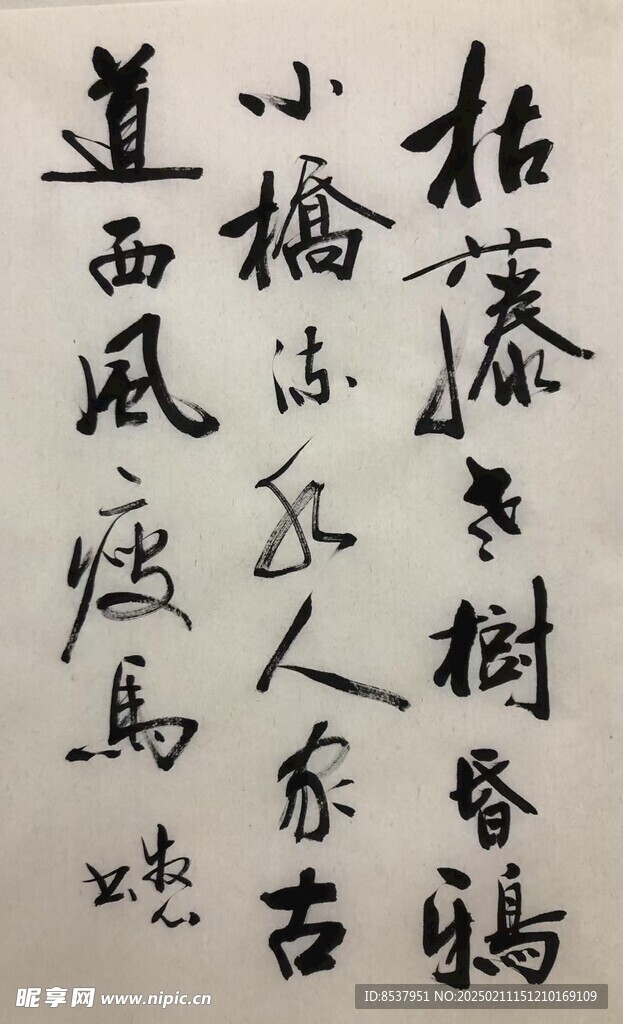 枯藤老樹昏鴉
小橋流水人家古
道西風瘦馬
書
昵享网 www.nipic.cn
ID:8537951 NO:20250211151210169109